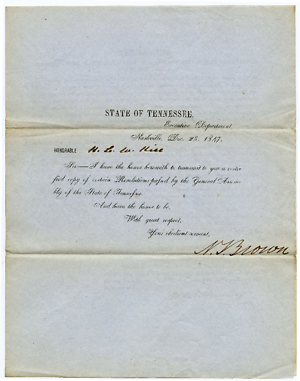 STATE OF TENNESSEE,
Executive Department
Nashville, Dec. 23. 1847.
HONORABLE
Sir—I have the honor herewith to transmit to you a certi-
fied copy of certain Resolutions passed by the General Assem-
bly of the State of Tennessee.
And have the honor to be,
With great respect,
Your obedient servant,
N. S. Brown